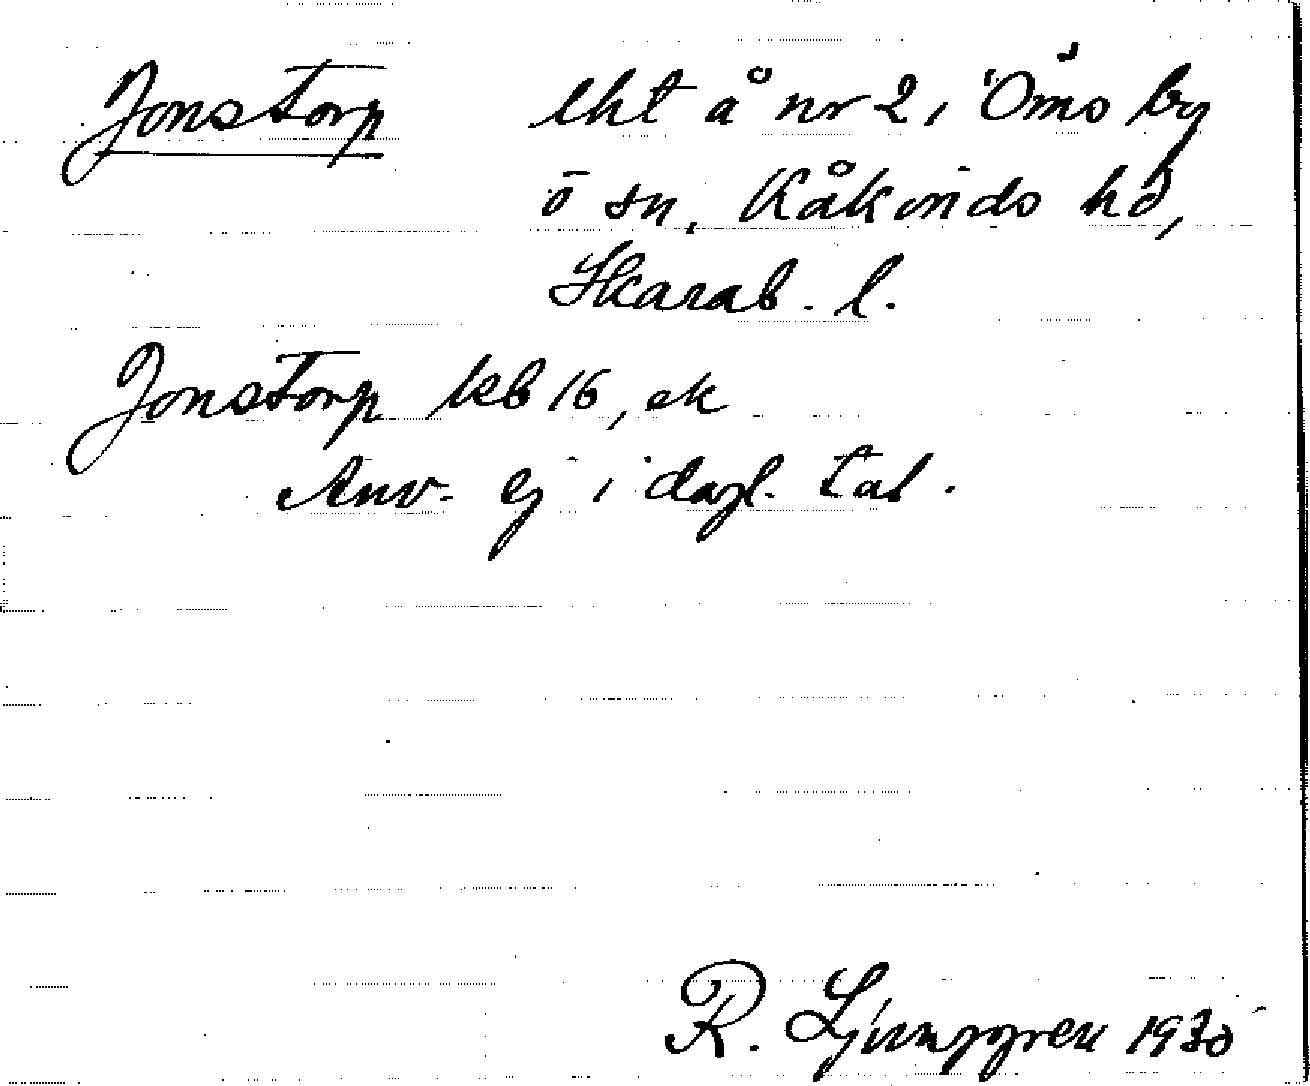 Jonstorp lht å nr 2 i Öms by
ö sn, Kåkinds hd,
Skarab. l.
Jonstorp kb 16, ek
Anv. ej i dagl. tal.
R. Ljunggren 1930